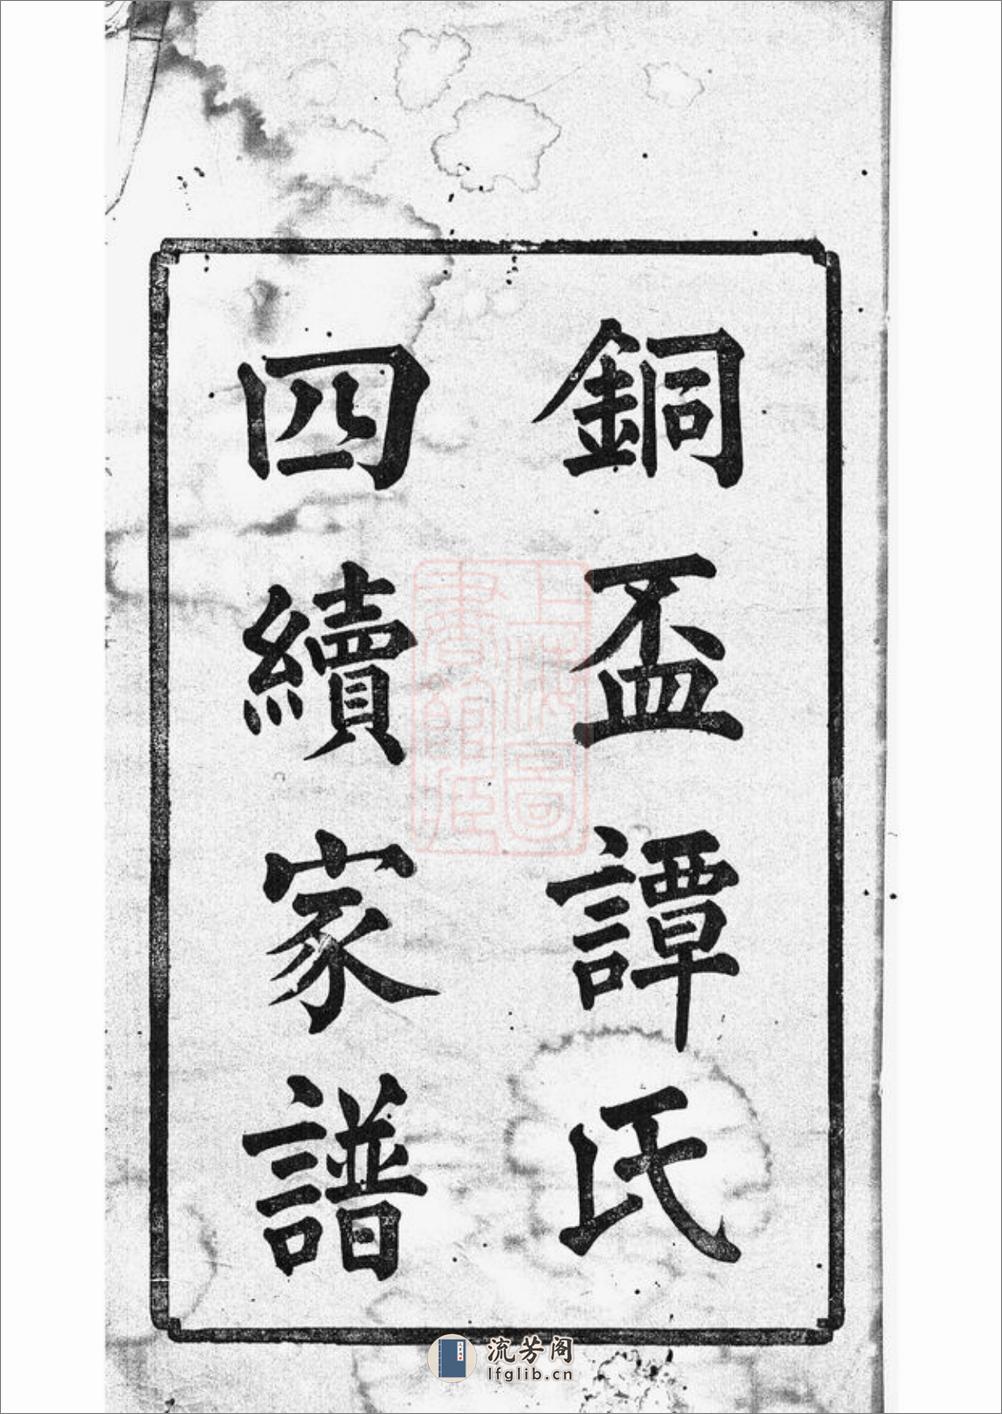 銅盃譚氏
四續家譜
上海圖
書館藏
流芳阁
lfglib.cn